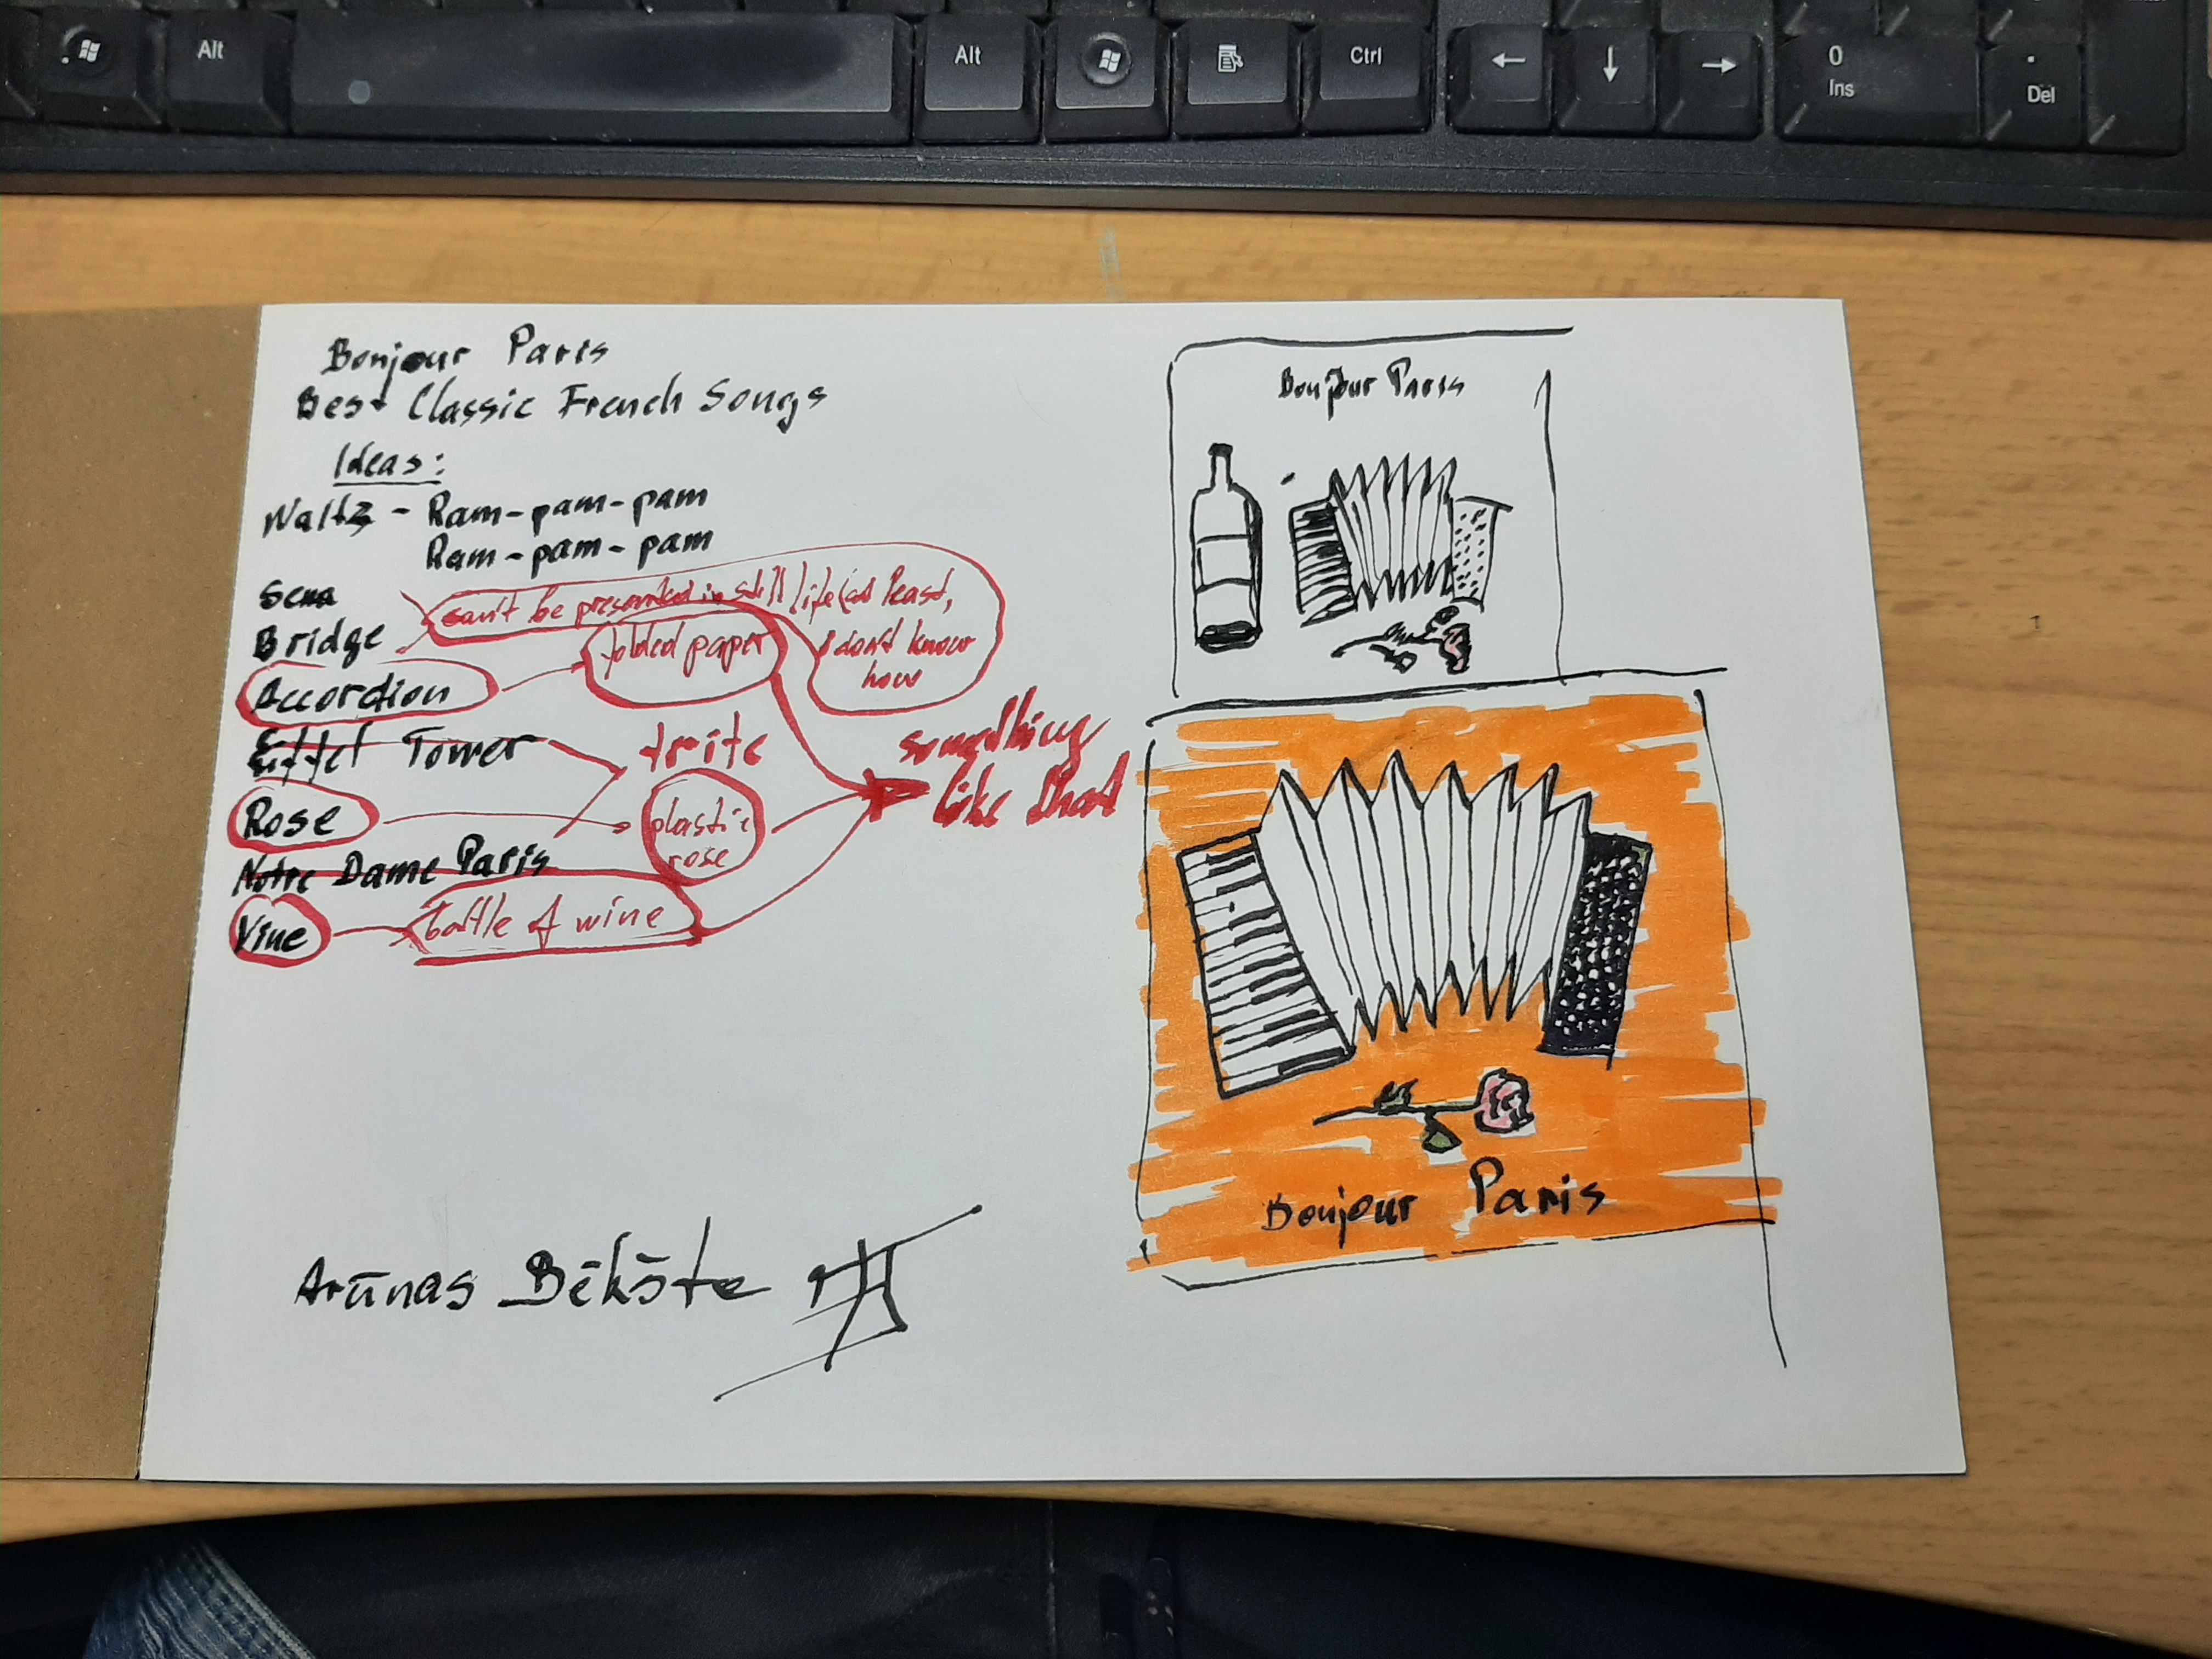 Alt
Alt
Ctrl
←
↓
→
0
Ins
.
Del
Bonjour Paris
Best Classic French Songs
Ideas:
Waltz - Ram-pam-pam
Ram-pam-pam
Sena
Bridge
can't be presented in still life (at least,
I don't know
how
Accordion
folded paper
Eiffel Tower
trite
something
like that
Rose
plastic
rose
Notre Dame Paris
Vine
bottle of wine
Arūnas Bėkšta
Bonjour Paris
Bonjour Paris